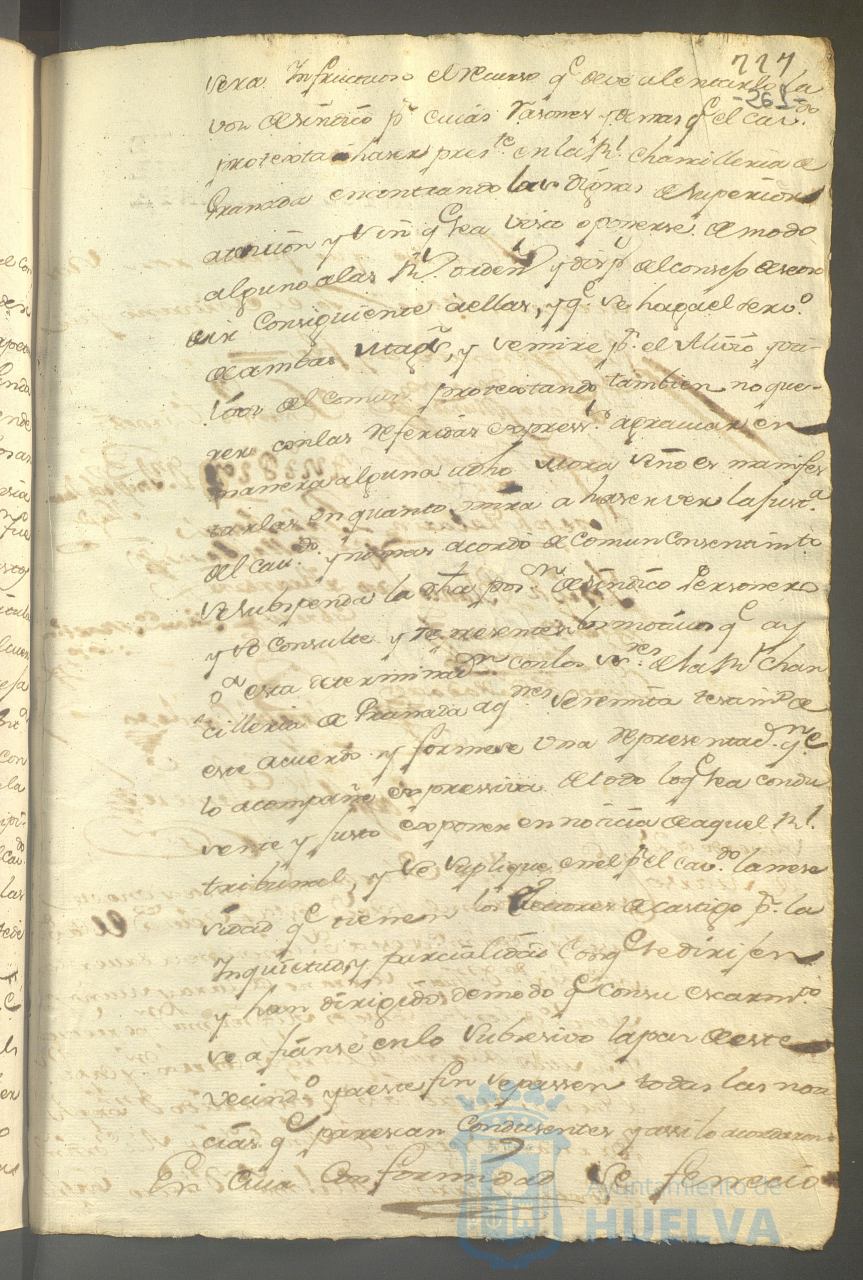 227
- 261 -
sera Infructuoso el recurso q.e deve alentarlo la
vos de sindico p.r cuias rasones y demas q.e el cav.do
protexta haser pres.te en la R.l Chancilleria de
Granada encontrando las dignas de superior
atención y sin q.e sea visto oponerse de modo
alguno a las R.s orden.s y del consejo
consiguiente a ellas, y q.e se haga el
de ambas y se mire p.r el alivio
del comun protextando tambien no que-
rer con las referidas express.s agraviar en
manera alguna
en quanto mira a haser ver la just.a
del cav.do y no mas acordo de comun consentim.to
se suspenda la dha pos.on de sindico Personero
y se consulte y represente los motivos q.e ay
p.a esta determinaz.on con los S.res de la R.l Chan
cilleria de Granada a q.nes se remita testim.o de
este acuerdo y formese una representaz.on q.e
lo acompañe expressiva de todo lo q.e sea condu
sente y justo exponer en noticia de aquel R.l
tribunal, y se suplique en el p.r el cav.do la nese
sidad q.e tienen los de castigo p.r la
Inquietud y parcialidad con q.e se dirijen
y han dirigido de modo q.e con su escarm.to
se afianse en lo subsesivo la pas de este
vecind.o y a este fin se passen todas las noti
cias q.e parescan condusentes y assi lo acordaron
En cuia conformidad se fenecio
Ayuntamiento de
HUELVA